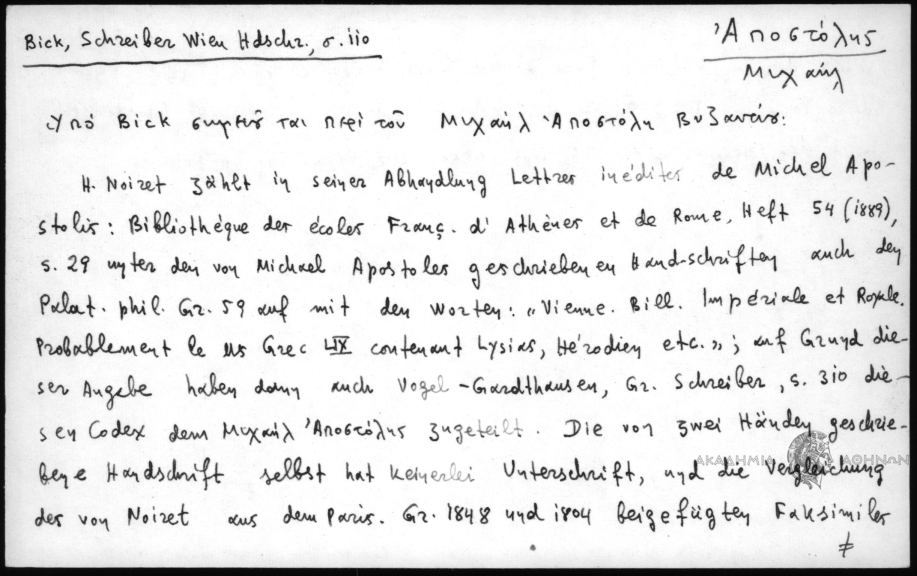 Bick, Schreiber Wien Hdschr., σ. 110
Ἀποστόλης
Μιχαήλ
Ὑπό Bick σημειοῦται περί τοῦ Μιχαήλ Ἀποστόλη Βυζαντίου:
H. Noiret zählt in seiner Abhandlung Lettres inédites de Michel Apo-
stolis: Bibliothéque des écoles Franç. d'Athènes et de Rome, Heft 54 (1889),
s. 29 unter den von Michael Apostoles geschriebenen Hand-schriften auch den
Palat. phil. Gr. 59 auf mit den Worten: „Vienne. Bill. Impériale et Royale.
Probablement le ms Grec LIX contenant Lysias, Hérodien etc.„; auf Grund die-
ser Angabe haben dann auch Vogel-Gardthausen, Gr. Schreiber, s. 310 die-
sen Codex dem Μιχαήλ Ἀποστόλης zugeteilt. Die von zwei Händen geschrie-
bene Handschrift selbst hat keinerlei Unterschrift, und die Vergleichung
der von Noiret aus dem Paris. Gr. 1848 und 1804 beigefügten Faksimiles
≠
ΑΚΑΔΗΜΙΑ ΑΘΗΝΩΝ